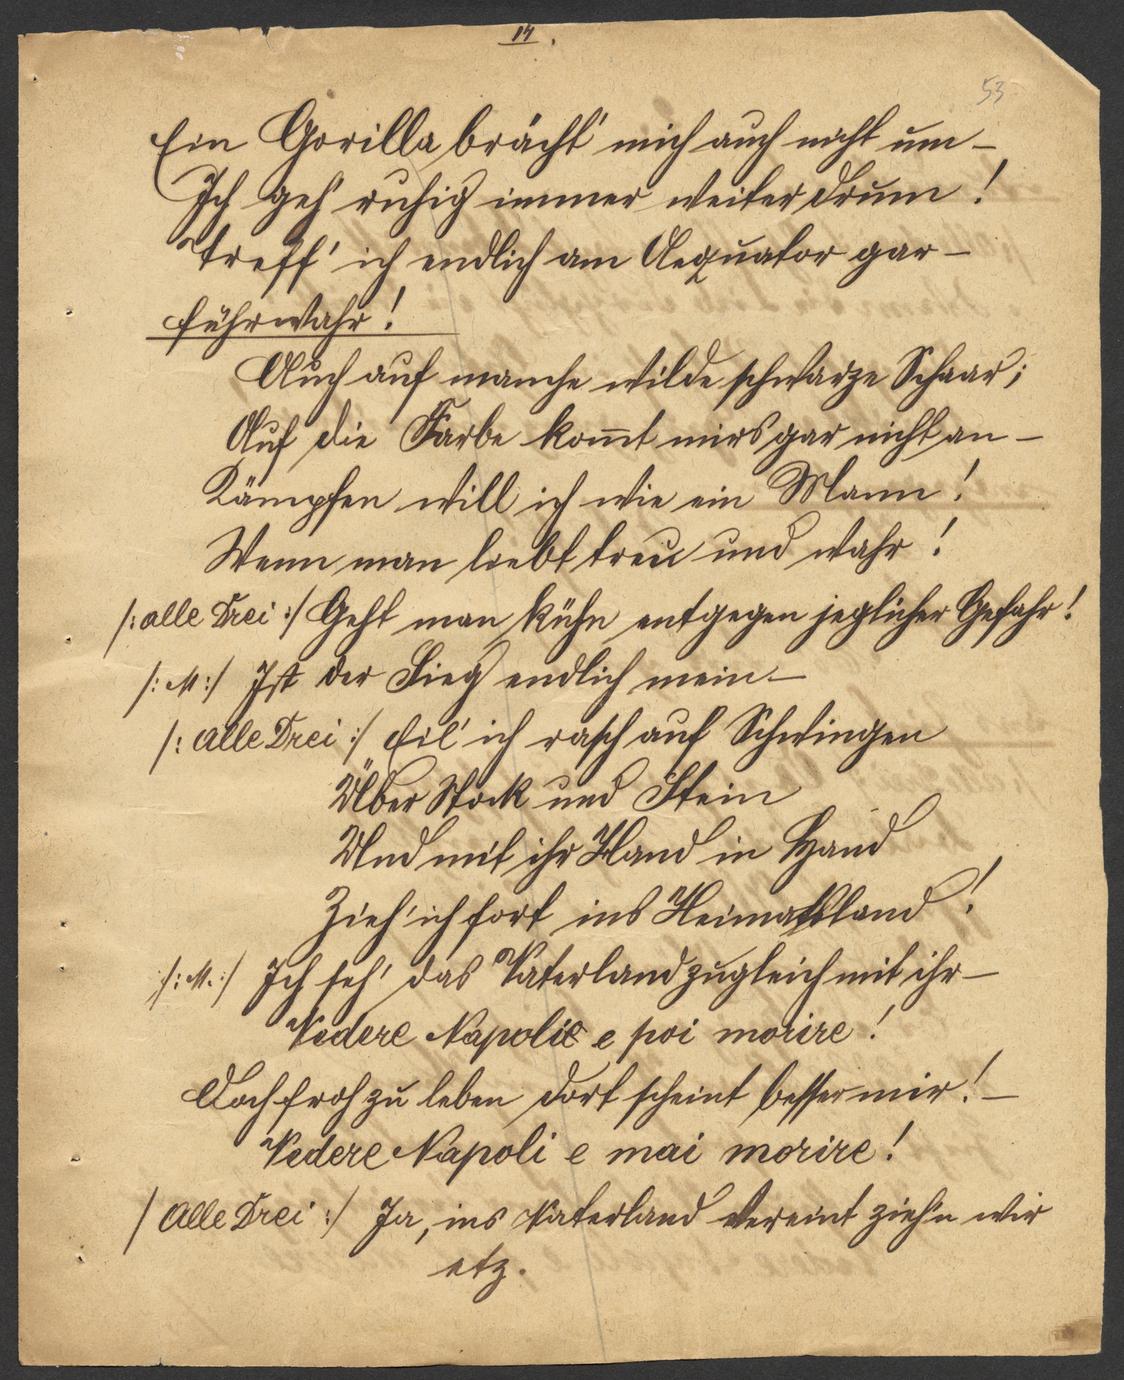 14.
53
Ein Gorilla brächt' mich auch nicht um –
Ich geh' ruhig immer weiter drum !
Treff' ich endlich am Aequator gar –
führwahr !
Auch auf manche wilde schwarze Schaar ;
Auf die Farbe kom̄t mirs gar nicht an –
Kämpfen will ich wie ein Mann !
Wenn man liebt treu und wahr !
/: alle Drei :/ Geht man kühn entgegen jeglicher Gefahr !
/: M :/ Ist der Sieg endlich mein –
/: alle Drei :/ Eil' ich rasch auf Schwingen
Über Stock und Stein
Und mit ihr Hand in Hand
Zieh' ich fort ins Heimathland !
/: M. :/ Ich seh' das Vaterland zugleich mit ihr –
Vedere Napoli e poi morire !
Doch froh zu leben dort scheint besser mir ! –
Vedere Napoli e mai morire !
/ alle Drei :/ Ja, ins Vaterland vereint zieh'n wir
etz.